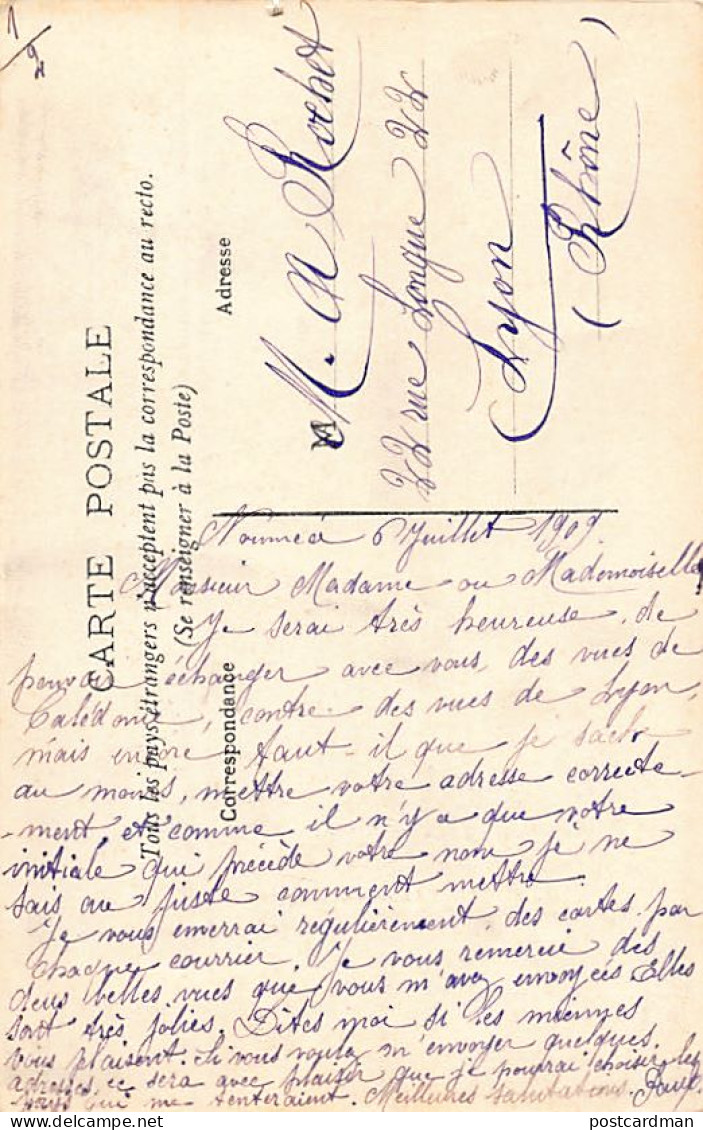 1/2
CARTE POSTALE
Tous les pays étrangers n'acceptent pas la correspondance au recto.
(Se renseigner à la Poste)
Correspondance
Adresse
M. A Rochet
22 rue Longue 22
Lyon
(Rhône)
Nouméa 6 Juillet 1909.
Monsieur Madame ou Mademoiselle
Je serai très heureuse, de
pouvoir échanger avec vous des vues de
Calédonie, contre des vues de Lyon,
mais encore faut-il que je sache
au moins, mettre votre adresse correcte-
-ment, et comme il n'y a que votre
initiale qui précède votre nom je ne
sais au juste comment mettre.
Je vous enverrai régulièrement des cartes par
chaque courrier. Je vous remercie des
deux belles vues que vous m'avez envoyées Elles
sont très jolies. Dites moi si les miennes
vous plaisent. Si vous voulez m'envoyer quelques
adresses, ce sera avec plaisir que je pourrai choisir les
pays qui me tenteraient. Meilleures salutations.
postcardman